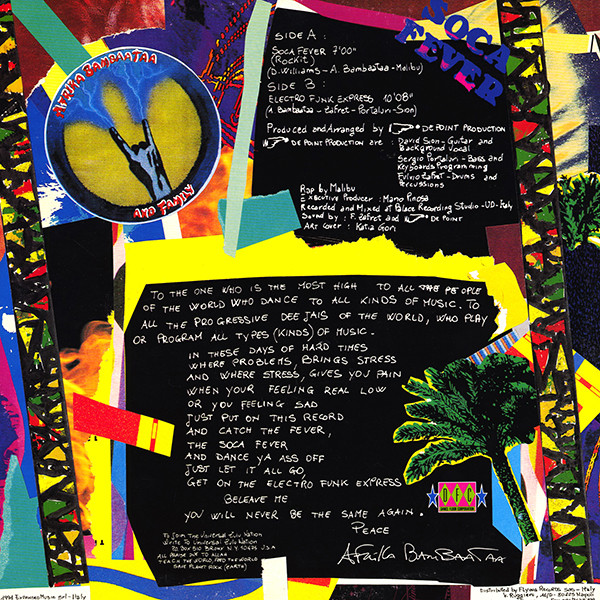 AFRIKA BAMBAATAA
AND FAMILY
SOCA
FEVER
SIDE A:
SOCA FEVER 7'00"
(ROCKIT)
(D. Williams - A. BAMBAATAA - Malibu)
SIDE B:
ELECTRO FUNK EXPRESS 10'08"
(A. Bambaataa - Zafret - Portaluri - Sion)
Produced and Arranged by DE POINT PRODUCTION
DE POINT PRODUCTION are: David Sion - Guitar and
Background Vocal
Sergio Portaluri - Bass and
Keyboards Programming
Fulvio Zafret - Drums and
Percussions
Rap by Malibu
Executive Producer:
Recorded and Mixed at Palace Recording Studio - UD - Italy
Sound by: F. Zafret and DE POINT
Art Cover: Katia Gori
TO THE ONE WHO IS THE MOST HIGH TO ALL THE PEOPLE
OF THE WORLD WHO DANCE TO ALL KINDS OF MUSIC. TO
ALL THE PROGRESSIVE DEE JAIS OF THE WORLD, WHO PLAY
OR PROGRAM ALL TYPES (KINDS) OF MUSIC.
IN THESE DAYS OF HARD TIMES
WHERE PROBLEMS, BRINGS STRESS
AND WHERE STRESS, GIVES YOU PAIN
WHEN YOUR FEELING REAL LOW
OR YOU FEELING SAD
JUST PUT ON THIS RECORD
AND CATCH THE FEVER,
THE SOCA FEVER
AND DANCE YA ASS OFF
JUST LET IT ALL GO,
GET ON THE ELECTRO FUNK EXPRESS
BELEAVE ME
YOU WILL NEVER BE THE SAME AGAIN.
PEACE
AFRIKA BAMBAATAA
DFC
To Join The Universal Zulu Nation
Write To Universal Zulu Nation
ALL PRAISE DUE TO ALLAH
TEACH THE WORLD, FEED THE WORLD
SAVE PLANET ROCK (EARTH)
Srl - Italy
Distributed by Flying Records SRL - Italy